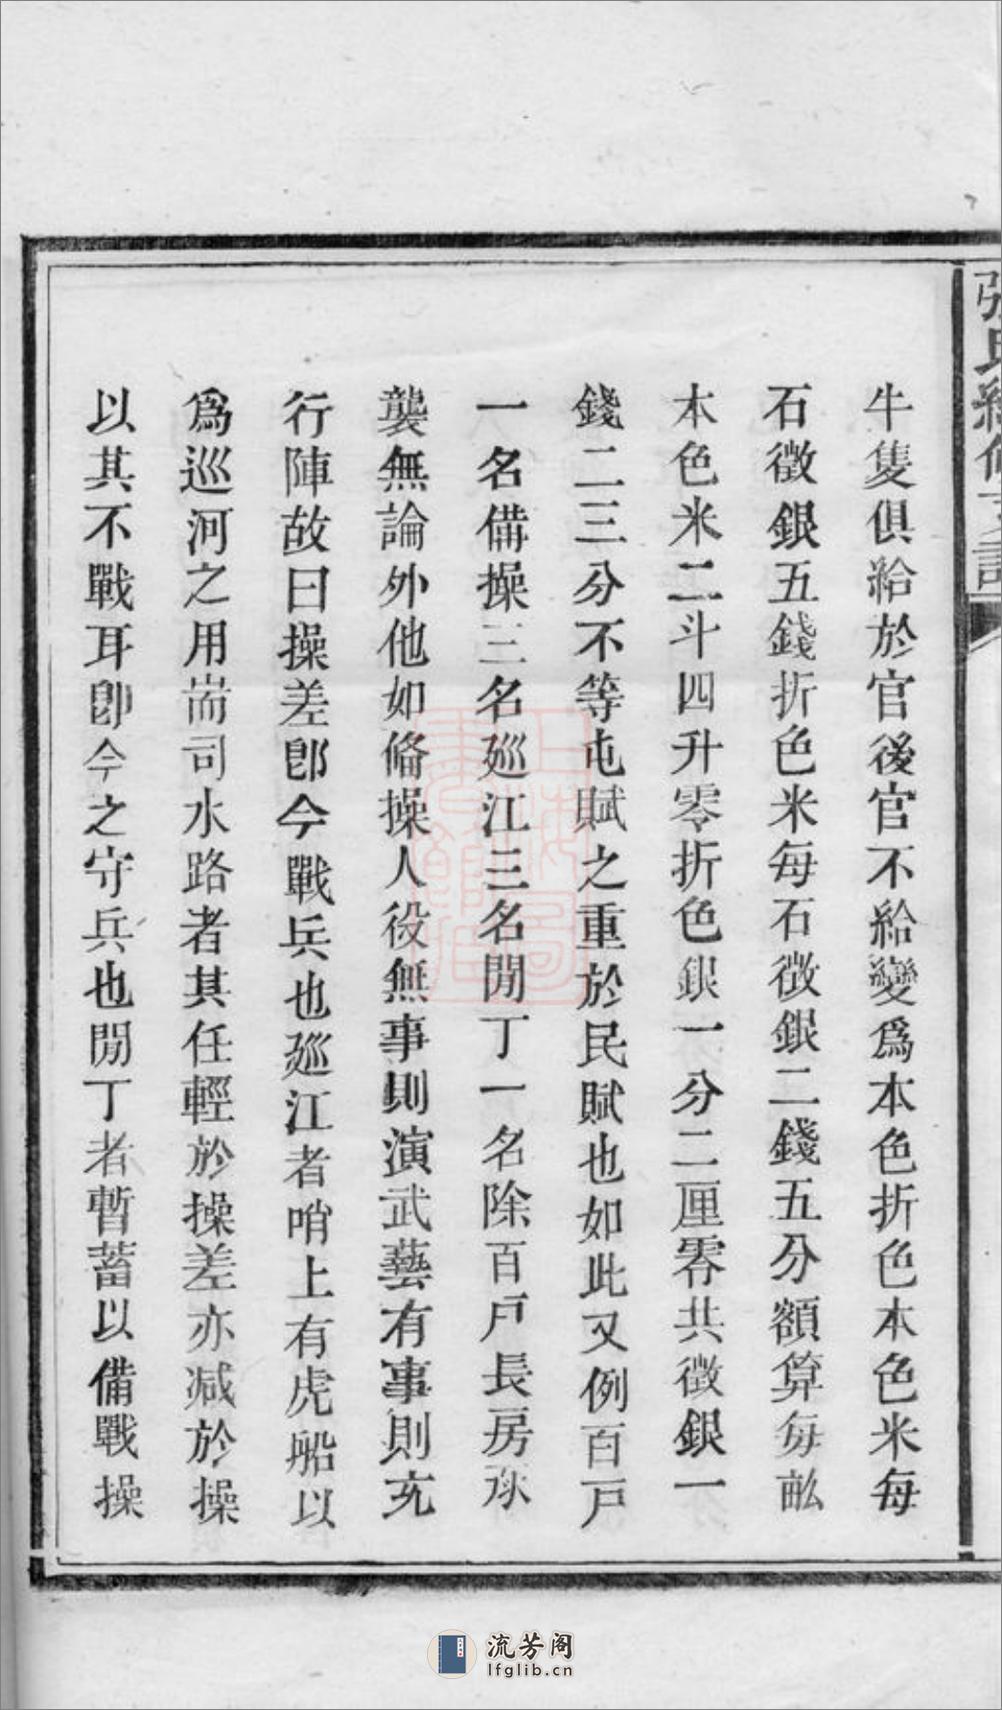 牛隻俱給於官後官不給變爲本色折色本色米每
石徵銀五錢折色米每石徵銀二錢五分額算每畝
本色米二斗四升零折色銀一分二厘零共徵銀一
錢二三分不等屯賦之重於民賦也如此又例百戸
一名備操三名廵江三名閒丁一名除百戸長房永
襲無論外他如俻操人役無事則演武藝有事則充
行陣故曰操差卽今戰兵也廵江者哨上有虎船以
爲巡河之用耑司水路者其任輕於操差亦減於操
以其不戰耳卽今之守兵也閒丁者暫蓄以備戰操
張氏續修支譜
上海圖書館藏
流芳阁
lfglib.cn